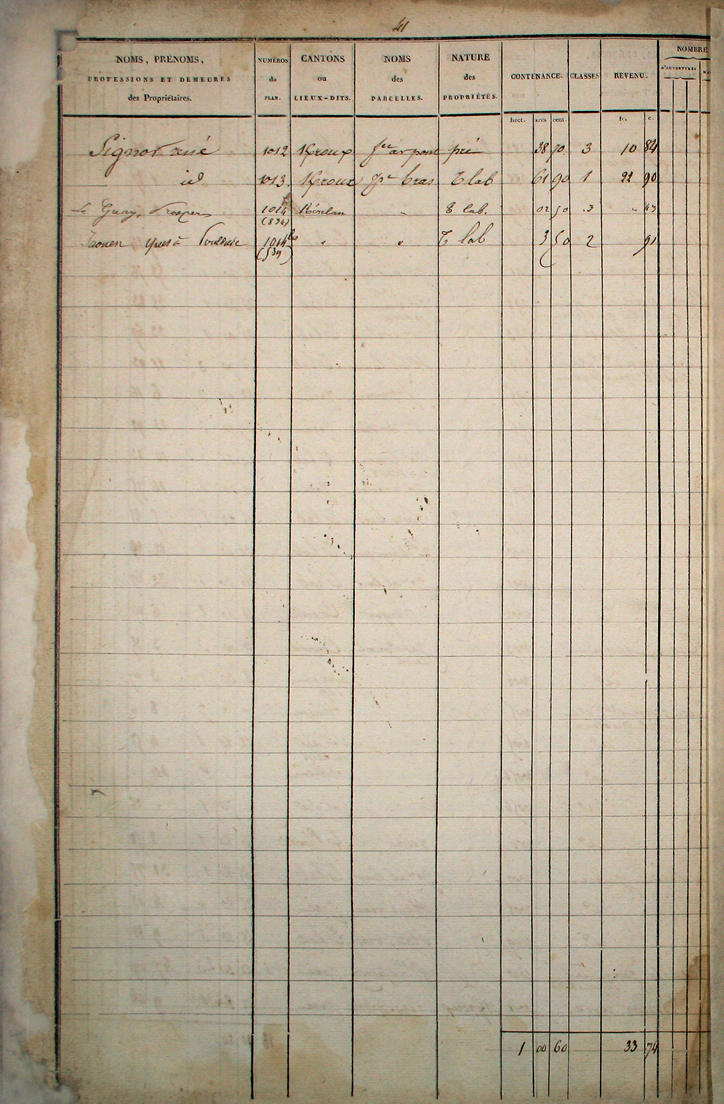 41
NOMS, PRÉNOMS, PROFESSIONS ET DEMEURES des Propriétaires. NUMÉROS du PLAN. CANTONS ou LIEUX-DITS. NOMS des PARCELLES. NATURE des PROPRIÉTÉS. CONTENANCE. CLASSES REVENU. NOMBRE D'OUVERTURES
hect. ares cent. fr. c.
Pignot réné 1012 Kroux pré 38 70 3 10 84
id 1013 Kroux bras T lab 61 90 1 22 90
Le Guay, Prosper 1014 (834) " T lab. 02 50 3 " 43
Jaouen yves à 1014 bis (539) " " T lab 3 50 2 91
1 00 60 33 74